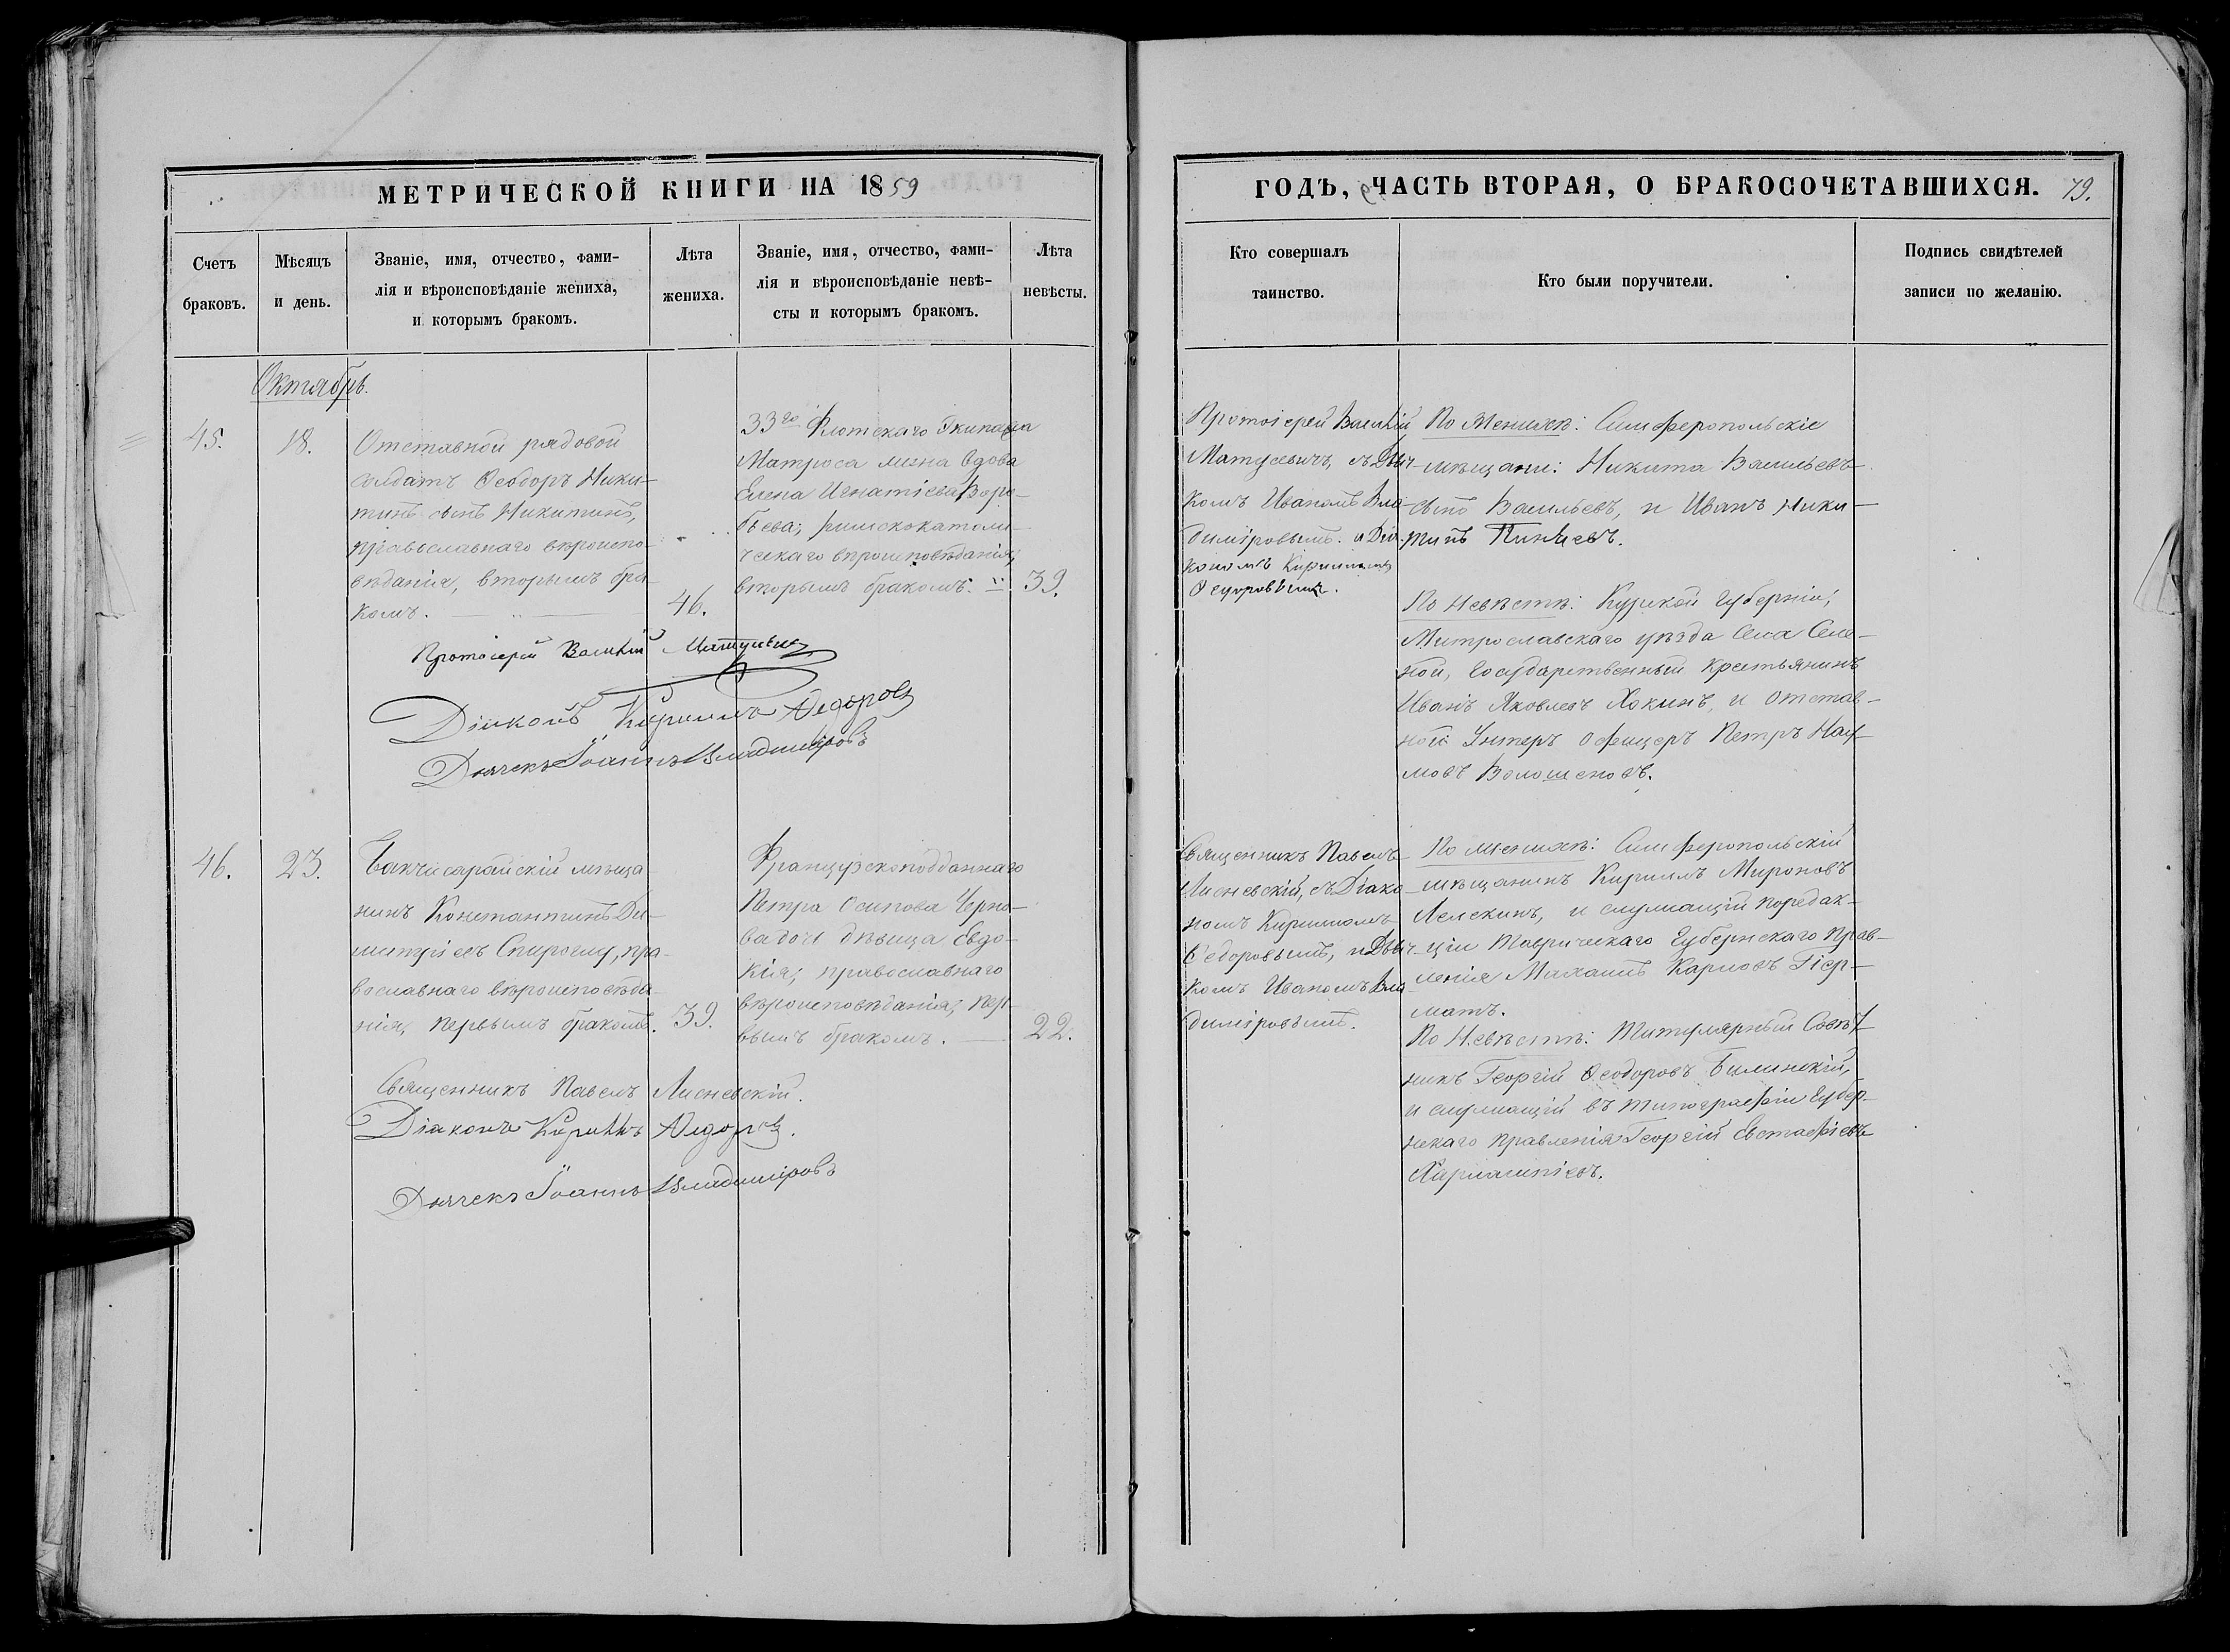 МЕТРИЧЕСКОЙ КНИГИ НА 1859
Счетъ
браковъ.
Мѣсяцъ
и день.
Званіе, имя, отчество, фами-
лія и вѣроисповѣданіе жениха,
и которымъ бракомъ.
Лѣта
жениха.
Званіе, имя, отчество, фами-
лія и вѣроисповѣданіе невѣ-
сты и которымъ бракомъ.
Лѣта
невѣсты.
Октябрь.
45.
18.
Отставной рядовой
солдатъ Ѳеодоръ Ники-
тинъ сынъ Никитинъ,
православнаго вѣроиспо-
вѣданія, вторымъ бра-
комъ.
46.
33го Флотскаго Экипажа
Матроса жена вдова
Елена Игнатіева Воро-
бьева; римскокатоли-
ческаго вѣроисповѣданія,
вторымъ бракомъ.
39.
Протоіерей Василій Матусевичъ
Діаконъ Кириллъ Ѳедоровъ
Дьячекъ Іоаннъ Владиміровъ
46.
23.
Бакчисарайскій мѣща-
нинъ Константинъ Ди-
митріевъ Спироглу, пра-
вославнаго вѣроисповѣда-
нія, первымъ бракомъ.
39.
Французскоподданнаго
Петра Осипова Черно-
ва дочь дѣвица Евдо-
кія; православнаго
вѣроисповѣданія, пер-
вымъ бракомъ.
22.
Священникъ Павелъ Лисневскій.
Діаконъ Кириллъ Ѳедоровъ.
Дьячекъ Іоаннъ Владиміровъ
ГОДЪ, ЧАСТЬ ВТОРАЯ, О БРАКОСОЧЕТАВШИХСЯ. 79.
Кто совершалъ
таинство.
Кто были поручители.
Подпись свидѣтелей
записи по желанію.
Протоіерей Василій
Матусевичъ, съ Дьяч-
комъ Иваномъ Вла-
диміровымъ. и Діа-
кономъ Кирилломъ
Ѳедоровымъ.
По Женихѣ: Симферопольскіе
мѣщане: Никита Васильевъ
сынъ Васильевъ, и Иванъ Ники-
тинъ
По Невѣстѣ: Курской Губерніи,
уѣзда Села
ной, Государственный крестьянинъ
Иванъ Яковлевъ Хокинъ, и отстав-
ной Унтеръ офицеръ Петръ Нау-
мовъ Волошеновъ.
Священникъ Павелъ
Лисневскій, съ Діако-
номъ Кирилломъ
Ѳедоровымъ, и Дьяч-
комъ Иваномъ Вла-
диміровымъ.
По женихѣ: Симферопольскій
мѣщанинъ Кириллъ Мироновъ
и служащій по редак-
ціи Таврическаго Губернскаго Прав-
ленія Карловъ Гієр-
матъ.
По Невѣстѣ: Титулярный Совѣт-
никъ Георгій Ѳеодоровъ Билинскій,
и служащій въ типографіи Губер-
нскаго правленія Георгій Евстафіевъ